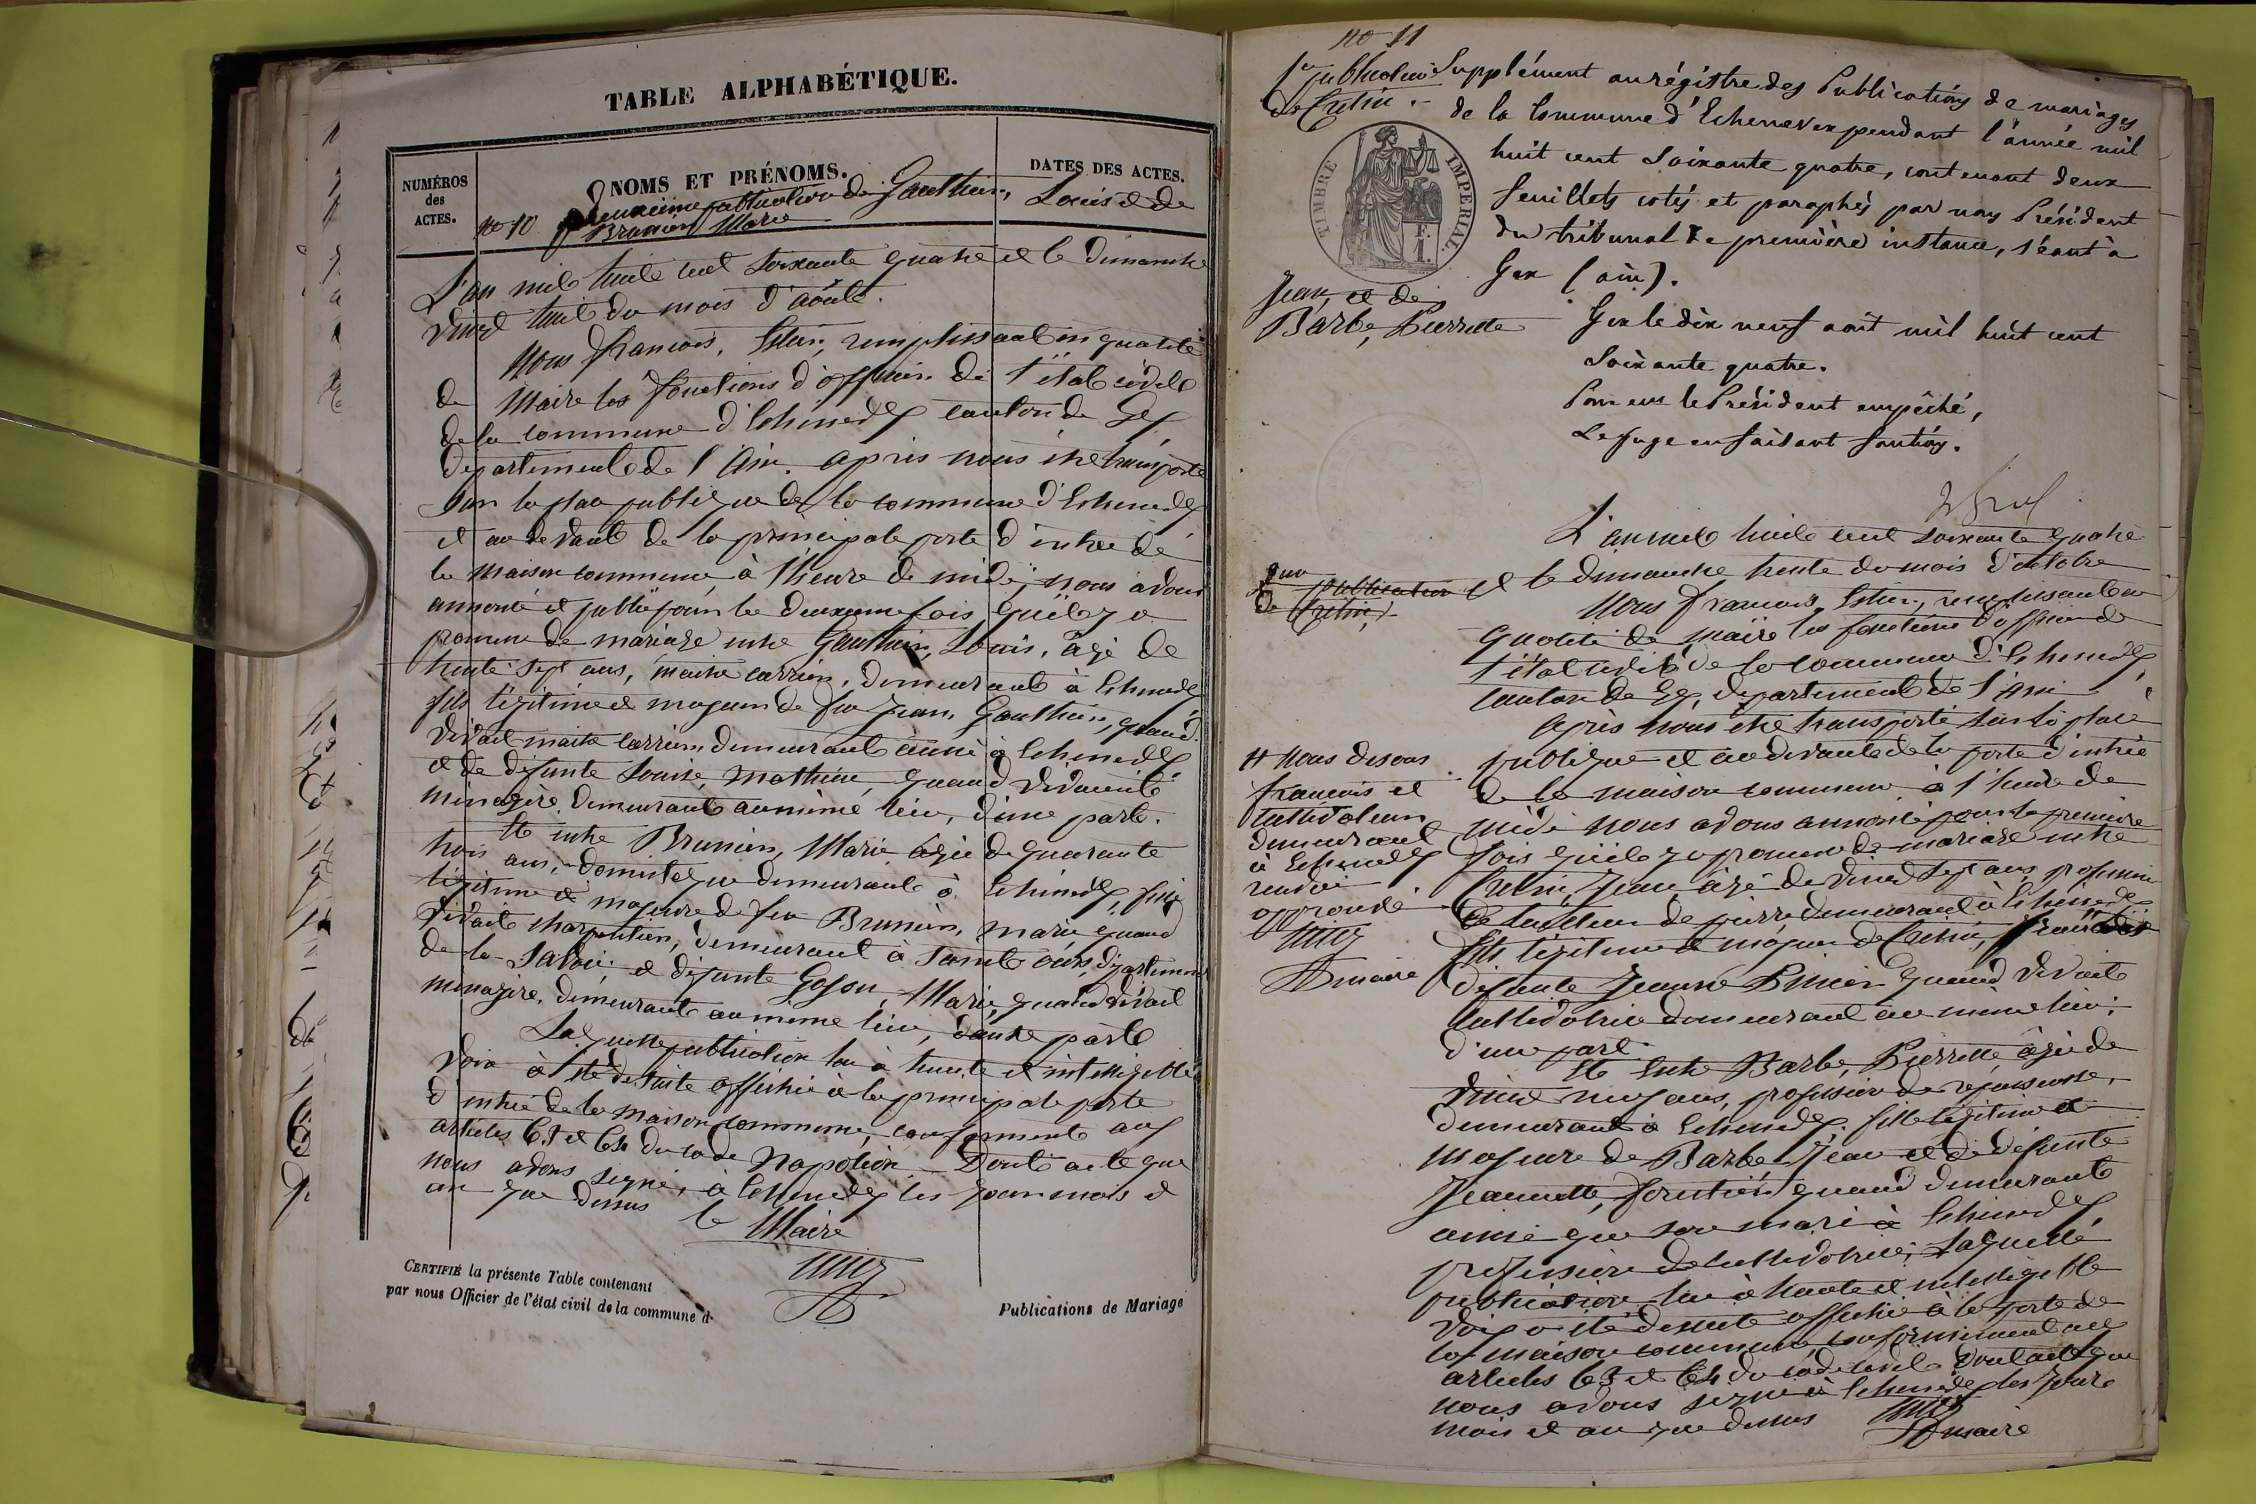 TABLE ALPHABÉTIQUE.
NUMÉROS
des
ACTES.
NOMS ET PRÉNOMS.
DATES DES ACTES.
no 10 Deuxième publication de Gauthier, Louis et de
Brunier Marie
L'an mil huit cent soixante quatre et le dimanche
vingt huit du mois d'août.
Nous François, remplissant en qualité
de Maire les fonctions d'officier de l'état civil
de la commune d'Echenevex canton de Gex
département de l'Ain. après nous être transporté
sur la place publique de la commune d'Echenevex
et au devant de la principale porte d'entrée de
la maison commune à l'heure de midi, nous avons
annoncé et publié pour la deuxième fois qu'il y a
promesse de mariage entre Gauthier, Louis, âgé de
trente sept ans, maître carrier, demeurant à Echenevex
fils légitime et majeur de feu Jean Gauthier, quand
vivait maître carrier demeurant aussi à Echenevex
et de défunte Louise, Mathieu, quand vivait
ménagère demeurant au même lieu, d'une part.
Et entre Brunier, Marie âgée de quarante
trois ans, domestique demeurant à Echenevex, fille
légitime et majeure de feu Brunier, marie quand
vivait charpentier, demeurant à Saint ours, département
de la Savoie, et défunte Marie, quand vivait
ménagère, demeurant au même lieu, d'autre part
Laquelle publication lue à haute et intelligible
voix a été de suite affichée à la principale porte
d'entrée de la maison commune, conformément aux
articles 63 et 64 du code Napoléon. Dont acte que
nous avons signé, à Echenevex les jour mois et
an que dessus
le Maire
CERTIFIÉ la présente Table contenant
par nous Officier de l'état civil de la commune d
Publications de Mariage
no 11
1re publication
de Crétin
Jean, et de
Barbe, Pierrette
Supplément au régistre des Publications de mariages
de la Commune d'Echenevex pendant l'année mil
huit cent soixante quatre, contenant deux
feuillets cotés et paraphés par nous Président
du tribunal de première instance, séant à
Gex (ain).
TIMBRE IMPÉRIAL
Gex le dix neuf août mil huit cent
soixante quatre.
Pour le Président empêché,
Le Juge en faisant fonctions.
L'an mil huit cent soixante quatre
et le dimanche trente du mois d'octobre
publication
de Crétin
Nous François, remplissant en
qualité de maire les fonctions d'officier de
l'état civil de la commune d'Echenevex,
canton de Gex, département de l'Ain
après nous être transporté sur la place
publique et au devant de la porte d'entrée
de la maison commune à l'heure de
midi nous avons annoncé pour la première
fois qu'il y a promesse de mariage entre
Crétin, Jean âgé de vingt sept ans profession
de tailleur de pierre demeurant à Echenevex
fils légitime et majeur de Crétin,
défunte Jeanne quand vivait
cultivatrice demeurant au même lieu,
d'une part.
nous disons
françois et
cultivateur
demeurant
à Echenevex
renvoi
approuvé
maire
Et Entre Barbe, Pierrette âgée de
vingt neuf ans, profession de repasseuse,
demeurant à Echenevex fille légitime et
majeure de Barbe Jean et de défunte
Jeannette, quand demeurant
ainsi que son mari à Echenevex
profession de cultivatrice, Laquelle
publication lue à haute et intelligible
voix a été de suite affichée à la porte de
la maison commune conformément aux
articles 63 et 64 du code civil Dont acte que
nous avons signé à Echenevex les jour
mois et an que dessus
maire